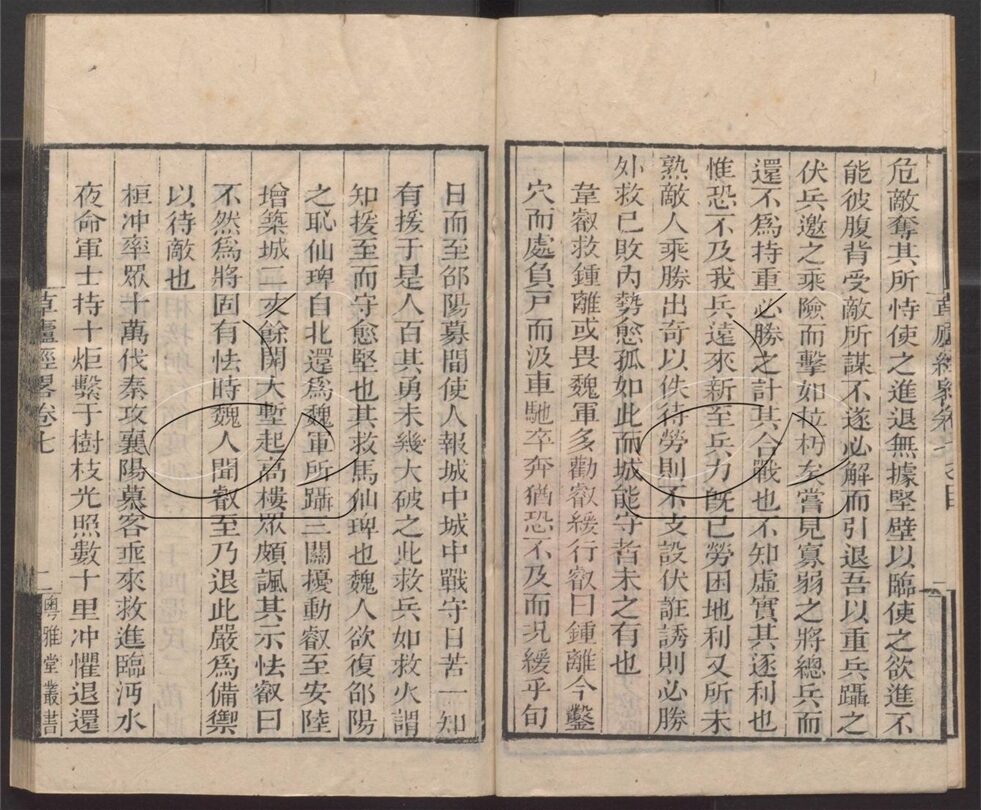 危敵奪其所恃使之進退無據堅壁以臨使之欲進不
能彼腹背受敵所謀不遂必解而引退吾以重兵躡之
伏兵邀之乘險而擊如拉朽矣嘗見寡弱之將總兵而
還不爲持重必勝之計其合戰也不知虛實其逐利也
惟恐不及我兵遠來新至兵力旣已勞困地利又所未
熟敵人乘勝出奇以佚待勞則不支設伏誑誘則必勝
外救已敗內勢愈孤如此而城能守者未之有也
韋叡救鍾離或畏魏軍多勸叡緩行叡曰鍾離今鑿
穴而處負戸而汲車馳卒奔猶恐不及而况緩乎旬
日而至邵陽募間使人報城中城中戰守日苦一知
有援于是人百其勇未幾大破之此救兵如救火謂
知援至而守愈堅也其救馬仙琕也魏人欲復邵陽
之恥仙琕自北還爲魏軍所躡三關擾動叡至安陸
增築城二丈餘開大塹起高樓眾頗諷其示怯叡曰
不然爲將固有怯時魏人聞叡至乃退此嚴爲備禦
以待敵也
桓冲率眾十萬伐秦攻襄陽慕容垂來救進臨沔水
夜命軍士持十炬繫于樹枝光照數十里冲懼退還
草廬經畧卷七
二
粵雅堂叢書